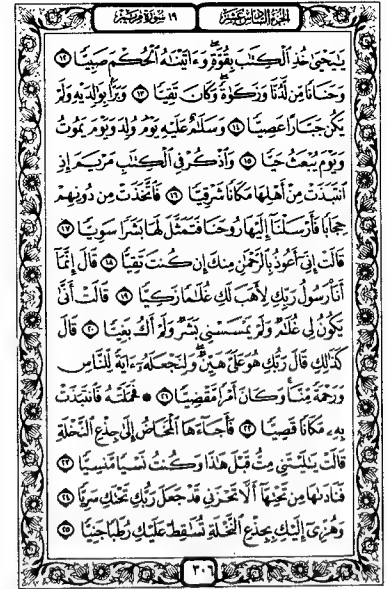 الجزء السادس عشر
١٩ سورة مريم
يَٰيَحْيَىٰ خُذِ ٱلْكِتَٰبَ بِقُوَّةٍ وَءَاتَيْنَٰهُ ٱلْحُكْمَ صَبِيًّا ١٢
وَحَنَانًا مِّن لَّدُنَّا وَزَكَوٰةً وَكَانَ تَقِيًّا ١٣ وَبَرًّۢا بِوَٰلِدَيْهِ وَلَمْ
يَكُن جَبَّارًا عَصِيًّا ١٤ وَسَلَٰمٌ عَلَيْهِ يَوْمَ وُلِدَ وَيَوْمَ يَمُوتُ
وَيَوْمَ يُبْعَثُ حَيًّا ١٥ وَٱذْكُرْ فِى ٱلْكِتَٰبِ مَرْيَمَ إِذِ
ٱنتَبَذَتْ مِنْ أَهْلِهَا مَكَانًا شَرْقِيًّا ١٦ فَٱتَّخَذَتْ مِن دُونِهِمْ
حِجَابًا فَأَرْسَلْنَآ إِلَيْهَا رُوحَنَا فَتَمَثَّلَ لَهَا بَشَرًا سَوِيًّا ١٧
قَالَتْ إِنِّىٓ أَعُوذُ بِٱلرَّحْمَٰنِ مِنكَ إِن كُنتَ تَقِيًّا ١٨ قَالَ إِنَّمَآ
أَنَا۠ رَسُولُ رَبِّكِ لِأَهَبَ لَكِ غُلَٰمًا زَكِيًّا ١٩ قَالَتْ أَنَّىٰ
يَكُونُ لِى غُلَٰمٌ وَلَمْ يَمْسَسْنِى بَشَرٌ وَلَمْ أَكُ بَغِيًّا ٢٠ قَالَ
كَذَٰلِكِ قَالَ رَبُّكِ هُوَ عَلَىَّ هَيِّنٌ وَلِنَجْعَلَهُۥٓ ءَايَةً لِّلنَّاسِ
وَرَحْمَةً مِّنَّا وَكَانَ أَمْرًا مَّقْضِيًّا ٢١ ۞ فَحَمَلَتْهُ فَٱنتَبَذَتْ
بِهِۦ مَكَانًا قَصِيًّا ٢٢ فَأَجَآءَهَا ٱلْمَخَاضُ إِلَىٰ جِذْعِ ٱلنَّخْلَةِ
قَالَتْ يَٰلَيْتَنِى مِتُّ قَبْلَ هَٰذَا وَكُنتُ نَسْيًا مَّنسِيًّا ٢٣
فَنَادَىٰهَا مِن تَحْتِهَآ أَلَّا تَحْزَنِى قَدْ جَعَلَ رَبُّكِ تَحْتَكِ سَرِيًّا ٢٤
وَهُزِّىٓ إِلَيْكِ بِجِذْعِ ٱلنَّخْلَةِ تُسَٰقِطْ عَلَيْكِ رُطَبًا جَنِيًّا ٢٥
٣٠٦